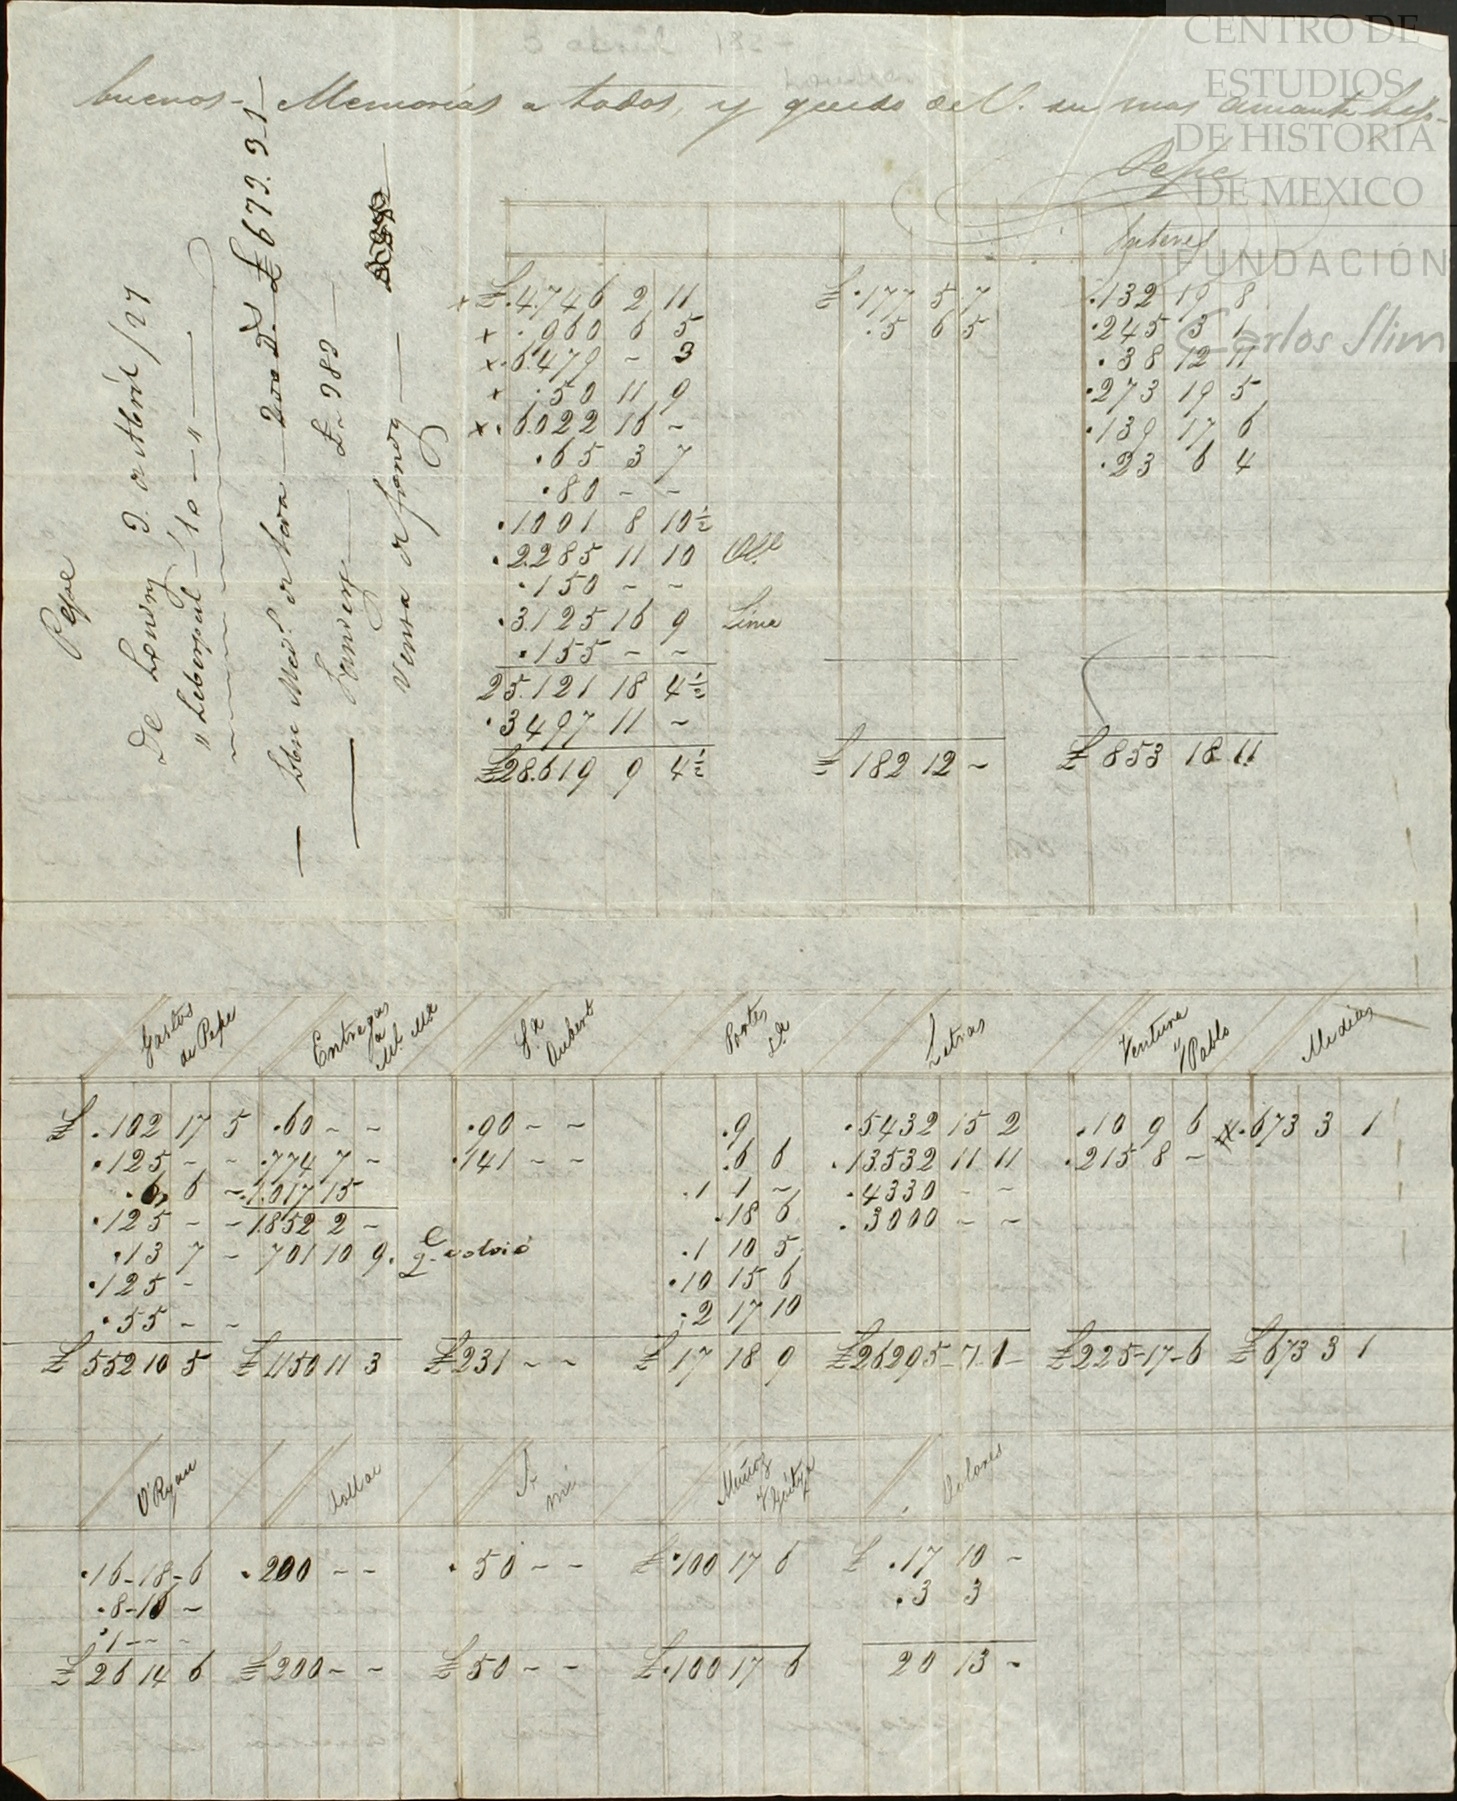 buenos - Memorias a todos, y quedo de V. su mas amante hijo -
Pepe
CENTRO DE
ESTUDIOS
DE HISTORIA
DE MEXICO
FUNDACIÓN
Carlos Slim
Pepe
De Londres 9. de Abril /27
" Liberpul - 10 - " - " -
£ 673. 3. 1
£ 983
Interes
x £ .4.746 2 11
x . 960 6 5
x . 6.479 - 3
x . 50 11 9
x . 6022 16 -
. 65 3 7
. 80 - -
. 1001 8 10½
. 2.285 11 10
. 150 - -
. 3.125 16 9 Lima
. 155 - -
25.121 18 4½
. 3497 11 -
£28.619 9 4½
£ .177 5 7
. 5 6 5
£ 182 12 -
.132 19 8
.245 3 1
. 38 12 11
.273 19 5
.139 17 6
. 23 6 4
£ 853 18 11
Gastos de Pepe
£ .102 17 5
.125 - -
. 6 6 -
.125 - -
.13 7 -
.125 -
. 55 - -
£ 552 10 5
Entregas a
.60 - -
.774 7 -
.1.017 15
1852 2 -
701 10 9. q.e volvió
£ 1150 11 3
S.a Aubert
.90 - -
.141 - -
£ 231 - -
Portes
.9
.6 6
.1 1 -
.18 6
.1 10 5
.10 15 6
.2 17 10
£ 17 18 9
Letras
.5432 15 2
.13532 11 11
.4330 - -
.3000 - -
£26295 - 7. 1 -
Ventura y Pablo
.10 9 6
.215 8 -
£225 - 17 - 6
Medias
.673 3 1
£ 673 3 1
O'Ryan
.16 - 18 - 6
. 8 - 16 -
. 1 - - -
£ 26 14 6
.200 - -
£ 200 - -
A mi
. 50 - -
£ 50 - -
Muñoz
£ .100 17 6
£ .100 17 6
Dolores
£ .17 10 -
. 3 3
20 13 -